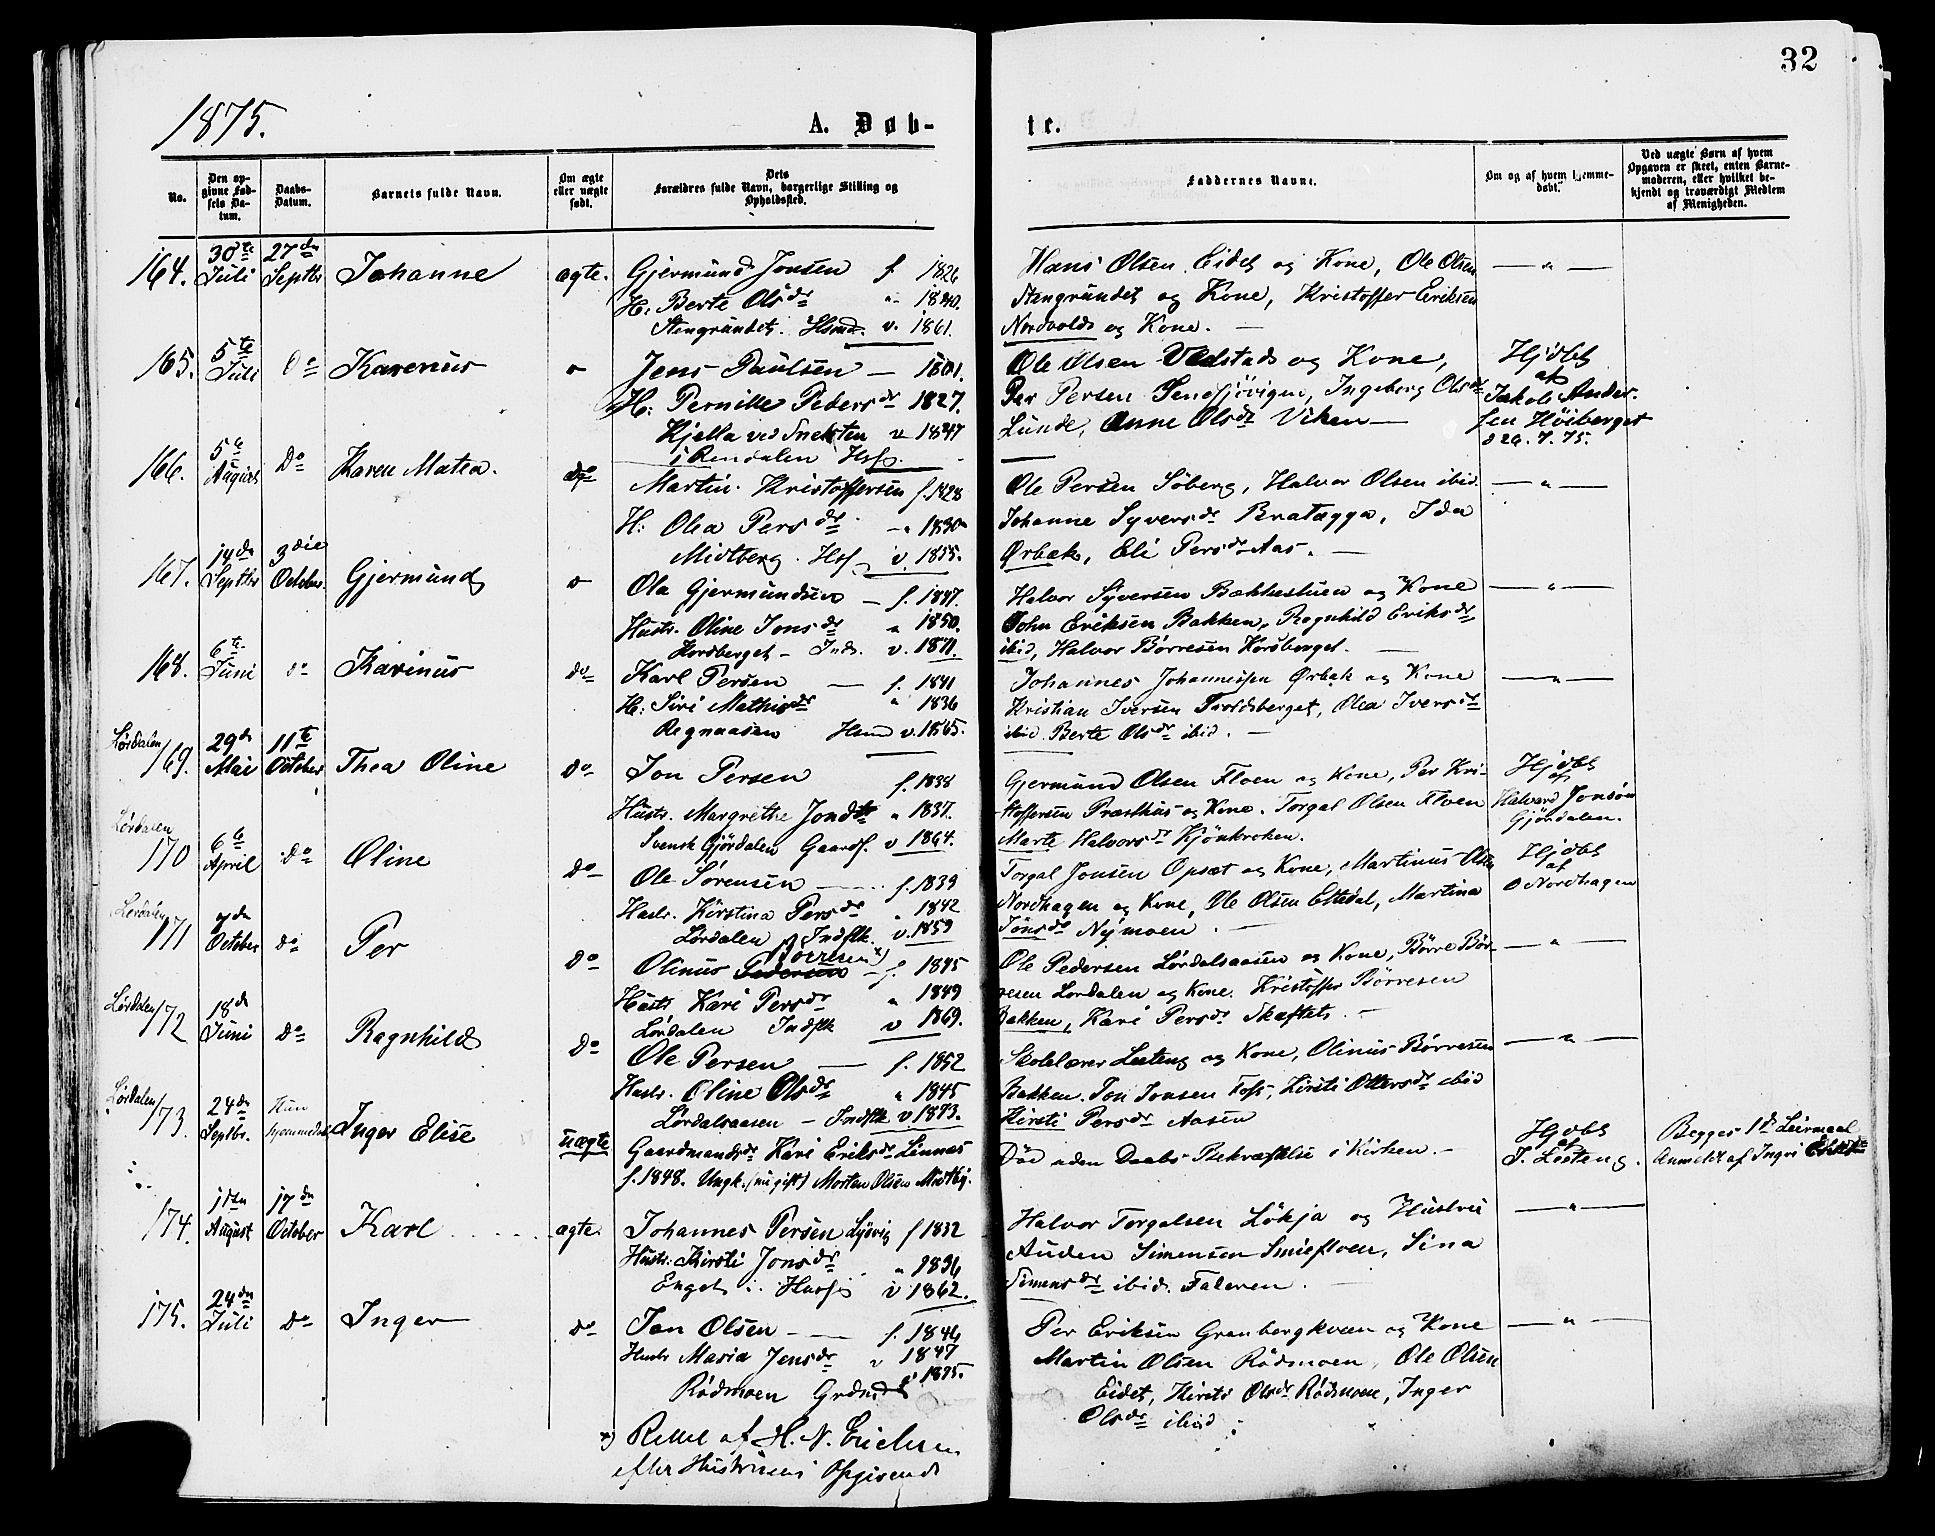 32
1875.
A. Døb-
te.
No.
Den op-
givne Fød-
sels Da-
tum.
Daabs-
Datum.
Barnets fulde Navn.
Om ægte
eller uægte
født.
Dets
Forældres fulde Navn, borgerlige Stilling og
Opholdssted.
Faddernes Navne.
Om og af hvem hjemme-
døbt.
Ved uægte Børn af hvem
Opgaven er skeet, enten Barne-
moderen, eller hvilket be-
kjendt og troværdigt Medlem
af Menigheden.
164. 30te Juli 27de Septbr Johanne ægte.
Gjermund Jonsen f. 1826
H: Berte Olsdr " 1840.
Stengrundet. Hsmd. v. 1861.
Hans Olsen Eidet og Kone, Ole Olsen — " —
Stengrundet og Kone, Kristoffer Eriksen
Nordvolds og Kone. —
165. 5te Juli Do Karenus
Jens Paulsen — 1801.
H: Pernille Pedersdr 1827.
Kjella ved Sneksten v 1847
i Rendalen Hsf.
Ole Olsen Vedstads og Kone,
Per Persen, Ingeborg Olsdr
Lunde, Anne Olsdr Viken —
Hjdbt
af
Jakob Ander-
sen Høiberget
d 26. 7. 75.
166. 5te August Do Karen Matea. do
Martin Kristoffersen f. 1828
H: Olea Persdr " 1830
Midtberg. Hsf v. 1855.
Ole Persen Søberg, Halvor Olsen ibid. — " —
Johanne Syversdr Bratægga, Ida
Ørbæk, Eli Persdr Aas. —
167. 14de Septbr 3die October. Gjermund
Ola Gjermundsen — f. 1847.
Hustr. Oline Jonsdr " 1850.
Korsberget — Inds. v. 1871.
Halvor Syversen Bækkeshuen og Kone — " —
John Eriksen Bakken, Ragnhild Eriksdr
ibid, Halvor Børresen Korsberget. —
168. 6te Juni do Karinus do
Karl Persen — f. 1841
H: Siri Mathisdr " 1836
Regnaasen Hsmd v. 1865.
Johannes Johannessen Ørbæk og Kone — " —
Kristian Iversen Troldsberget, Olea Iversdr
ibid. Berte Olsdr ibid. —
Lørdalen
169. 29de Mai 11te October Thea Oline Do
Jon Persen f. 1838
Hustr. Margrethe Jonsdtr " 1837.
Svensk Gjørdalen Gaardf. v 1864.
Gjermund Olsen Floen og Kone, Per Kri-
stoffersen Præsthus og Kone. Torgal Olsen Floen
Marte Halvorsdr Kjønkroken.
Hjdbt
af
Halvard Jonsøn
Gjørdalen.
Lørdalen
170 6te April Do Oline Do
Ole Sørensen — f. 1839
Hustr. Kirstina Persdr " 1842
Lørdalen Indstk. v. 1859
Torgal Jonsen Opsæt og Kone, Martinus Olsen
Nordhagen og Kone, Ole Olsen Eltedal, Martina
Jonsdr Nymoen. —
Hjdbt
af
O Nordhagen
Lørdalen
171 7de October Do Per Do
Børresen x)
Olinus Pedersen — f. 1845
Hustr. Kari Persdr " 1849
Lørdalen Indstk v 1869.
Ole Pedersen Lørdalsaasen og Kone, Børre Bør- — " —
resen Lørdalen og Kone. Kristoffer Børresen
Bakken, Kari Persdr Skaftet. —
Lørdalen
172 18de Juni Do Ragnhild Do
Ole Persen — f. 1852
Hustr. Oline Olsdr " 1845
Lørdalsaasen — Indstk v 1873.
Skolelærer Lesteng og Kone, Olinus Børresen — " —
Bakken. Jon Jonsen Foss, Kirsti Ottersdr ibid
Kirsti Persdr Aasen
Lørdalen
173. 24de Septbr. Kun hjemmedøbt Inger Elise uægte
Gaardmandsdr Kari Eriksdr Linnæs
f. 1848. Ungk. (nu gift) Morten Olsen Midtbg.
Død uden Daabs-Bekræftelse i Kirken. —
Hjdbt
af
J. Lesteng.
Begges 1ste Leirmaal
Anmeldt af
174. 11te August 17de October Karl ægte.
Johannes Persen Lysvig f 1832
Hustr. Kirsti Jonsdr " 1836
Enget v 1862.
Halvor Torgalsen Løkja og Hustru — " —
Auden Simensen Smiefloen, Sina
Simensdr ibid. Faderen. —
175. 24de Juli Do Inger do
Jon Olsen — f. 1846
Hustr Maria Jensdr " 1847
Rødmoen Grdmd v 1875.
Per Eriksen Granbergkvæn og Kone — " —
Martin Olsen Rødmoen, Ole Olsen
Eidet, Kirsti Olsdr Rødmoen, Inger
Olsdr ibid
x) Rettet af H. N.
efter Hustruens Opgivende